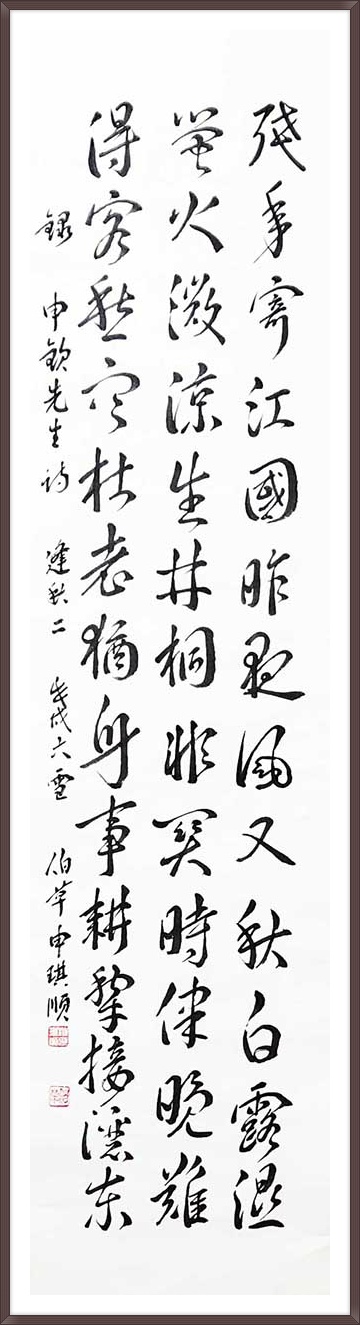 殘年寄江國昨夜風又秋白露濕
螢火微涼生井桐非關時律晚難
得客愁空杜老猶身事耕犂接瀼東
錄 申欽先生詩 逢秋二 戌 雪 伯草申琪順